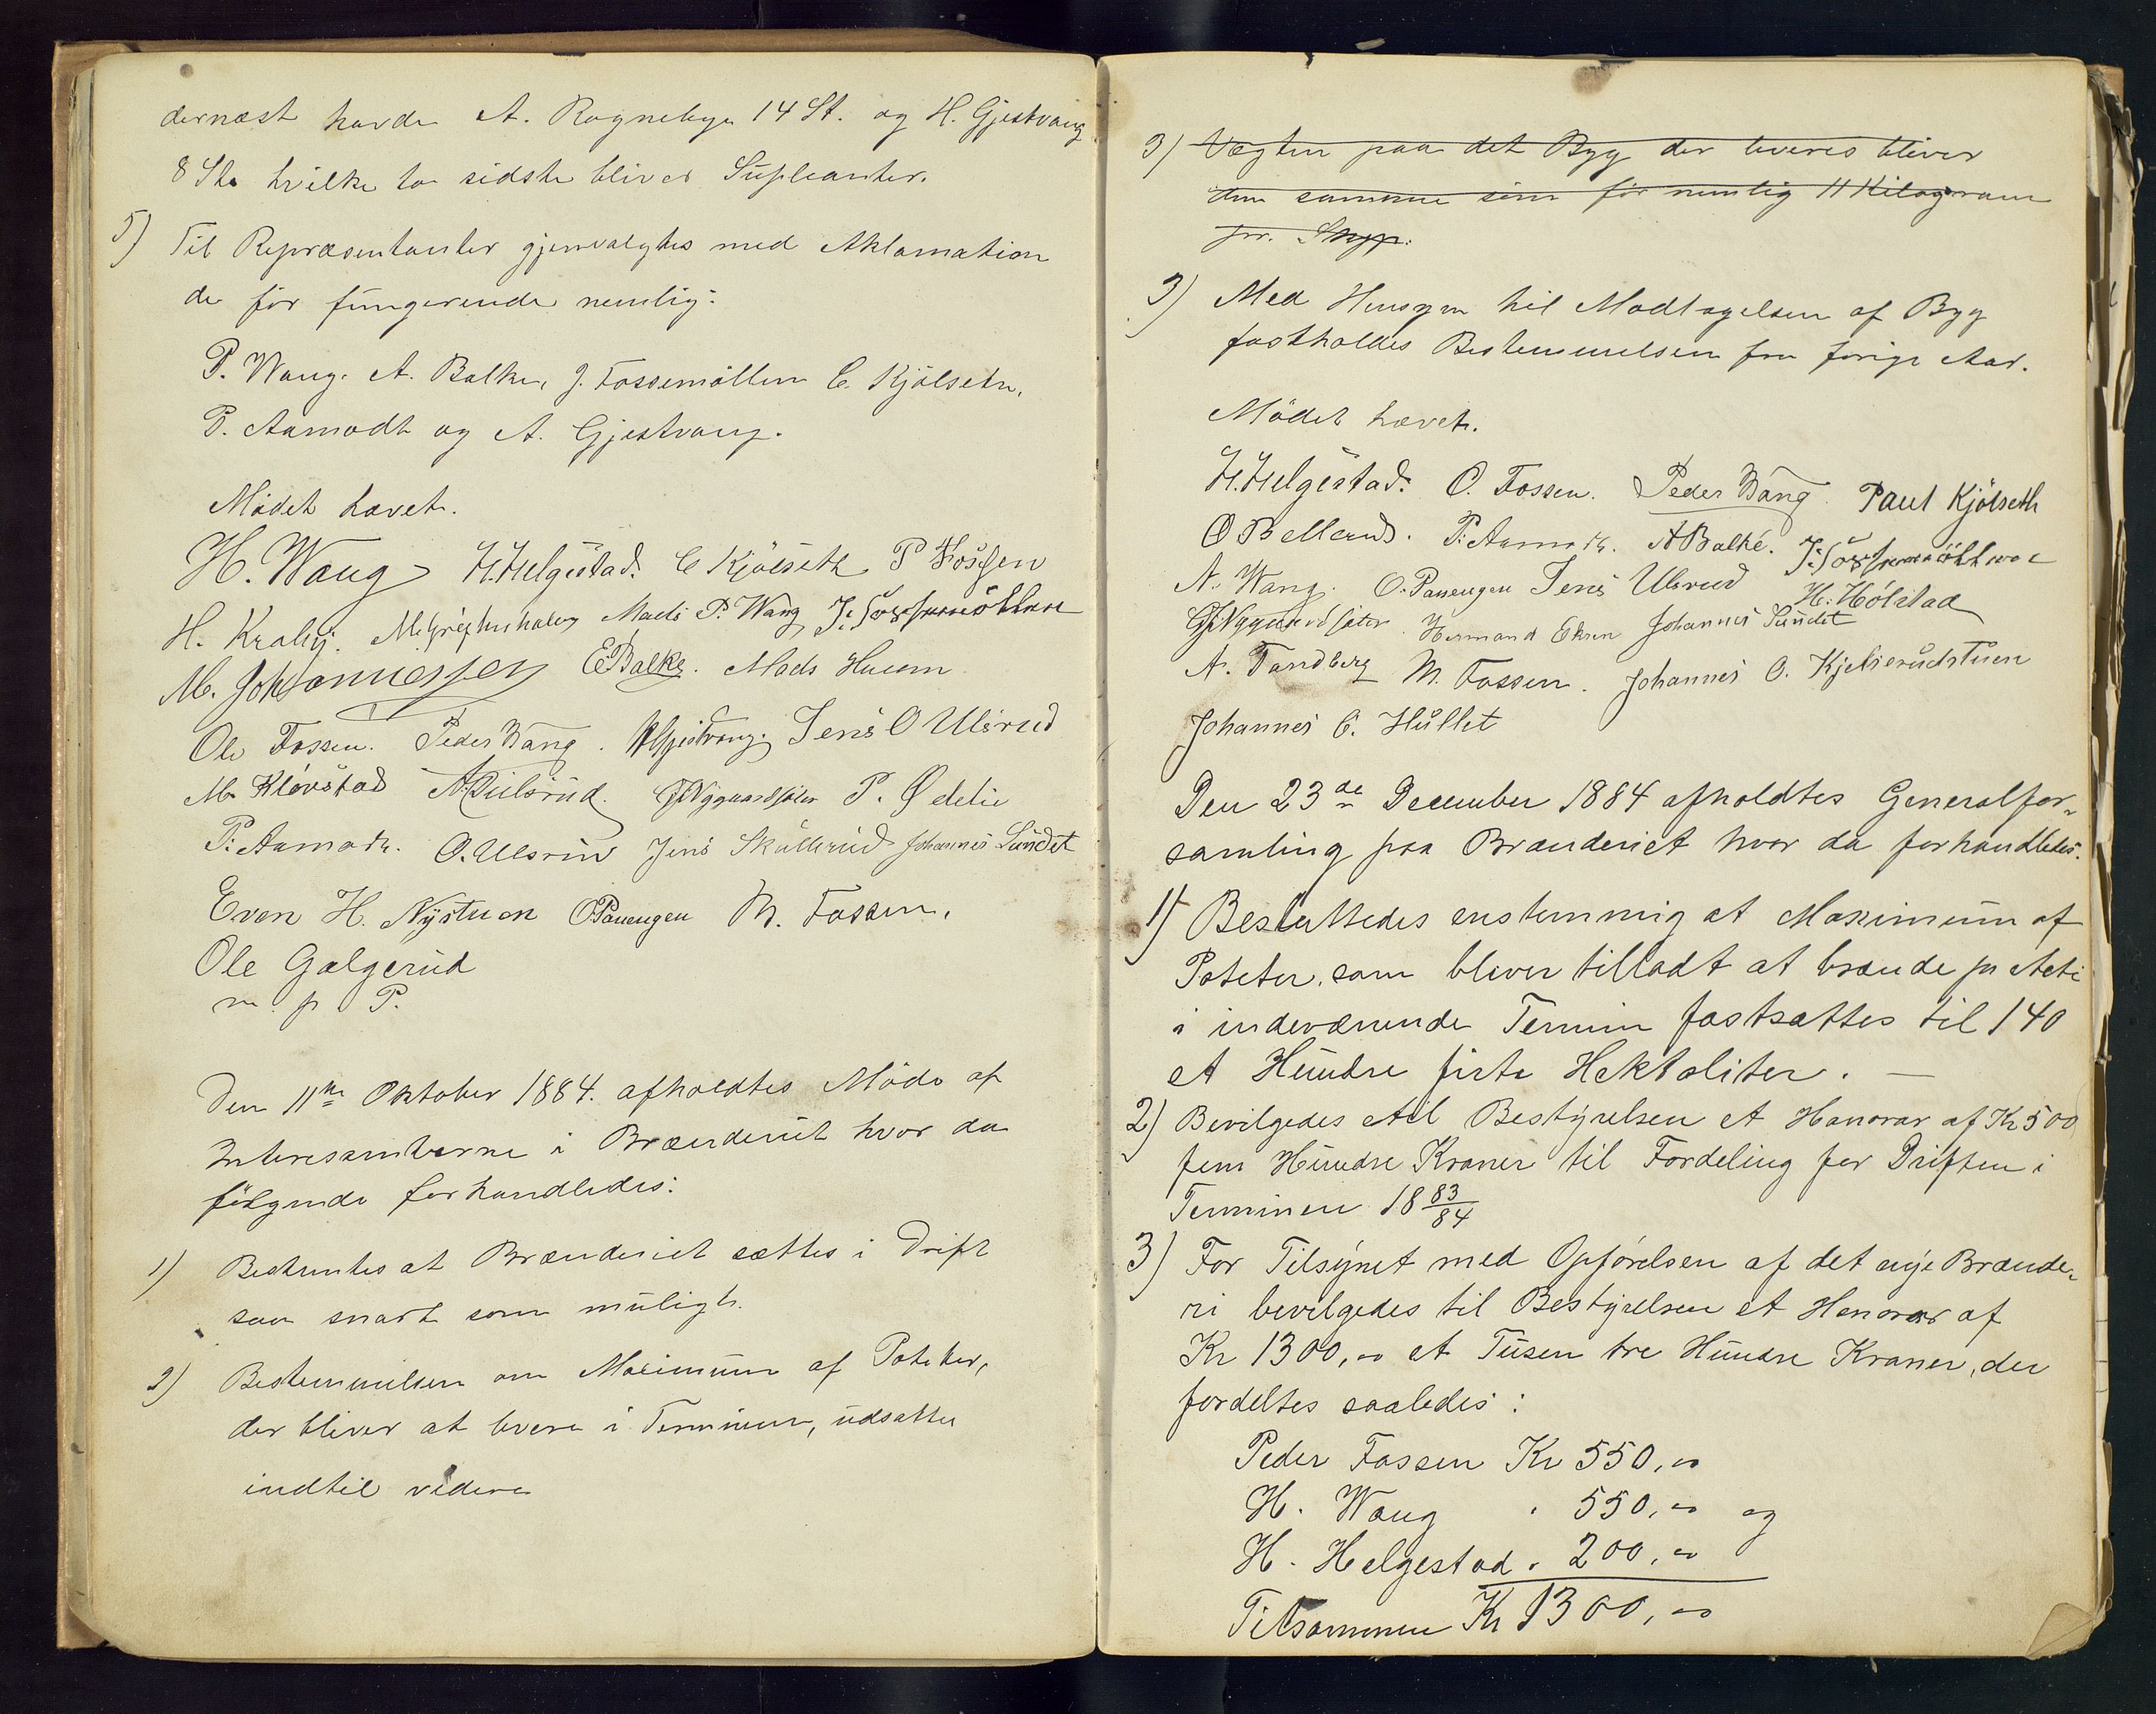 dernæst havde A. Rognebye 14 St. og H. Gjestvang
8 St. hvilke to sidste bliver Supleanter.
5) Til Repræsentanter gjenvalgtes med Aklamation
de før fungerende nemlig:
P. Wang. A. Balke, J. Fossemøllen C. Kjølseth,
P. Aamodt og A. Gjestvang.
Mødet hævet.
H. Wang H. Helgestad. C Kjølseth P Fossen
H. Kraby. Mads P. Wang J. Fossemøllen
M. Johannessen E Balke. Mads Huem
Ole Fossen. Peder Wang. A Gjestvang. Jens O Ulsrud
M. Kløvstad P. Ødelie
P. Aamodt. O. Ulsrud Jens Skullerud Johannes Sundet
Even H. Nystuen O Panengen M. Fossen.
Ole Galgerud
m. p P.
Den 11te Oktober 1884. afholdtes Møde af
Interesenterne i Brænderiet hvor da
følgende forhandledes:
1) Bestemtes at Brænderiet sættes i Drift
saa snart som muligt.
2) Bestemmelsen om Maximum af Poteter,
der bliver at levere i Terminen, udsattes
indtil videre
3) Vægten paa det Byg der leveres bliver
den samme som før nemlig 11 Kilogram
pr. Skjp.
3) Med Hensyn til Modtagelsen af Byg
fastholdes Bestemmelsen fra forige Aar.
Mødet hævet.
H. Helgestad. O. Fossen. Peder Wang. Paul Kjølseth
O Bellerud. P. Aamodt. A Balke. J. Fossemøllen
N. Wang. O. Panengen Jens Ulsrud H. Hólstad
G Nygaardsæter. Hermand Ekren Johannes Sundet
A. Tandberg M. Fossen. Johannes O. Kjelserudstuen
Johannes C. Hullet
Den 23de December 1884 afholdtes Generalfor-
samling paa Brænderiet hvor da forhandledes.
1) Besluttedes enstemmig at Maximum af
Poteter, som bliver tilladt at brænde pr Actie
i indeværende Termin fastsættes til 140
et Hundre firte Hektoliter. —
2) Bevilgedes til Bestyrelsen et Honorar af Kr 500
fem Hundre Kroner til Fordeling for Driften i
Terminen 18 83/84
3) For Tilsynet med Opførelsen af det nye Brænde-
ri bevilgedes til Bestyrelsen et Honorar af
Kr 1300,00 et Tusen tre Hundre Kroner, der
fordeltes saaledes:
Peder Fossen Kr 550,00
H. Wang " 550,00 og
H. Helgestad " 200,00
Tilsammen Kr 1300,00